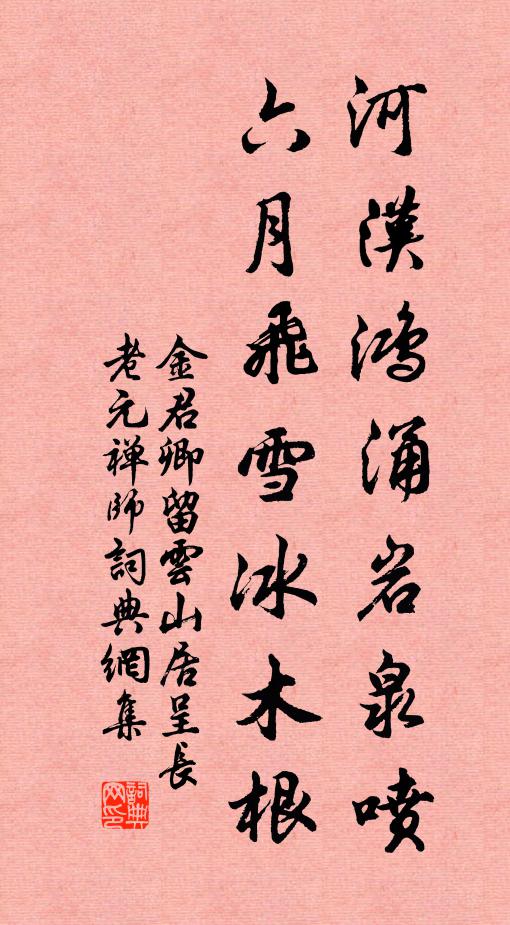 河漢鴻涌岩泉噴
六月飛雪冰木根
金君卿留雲山居呈長
老元禅師詞典網集
詞典
网印